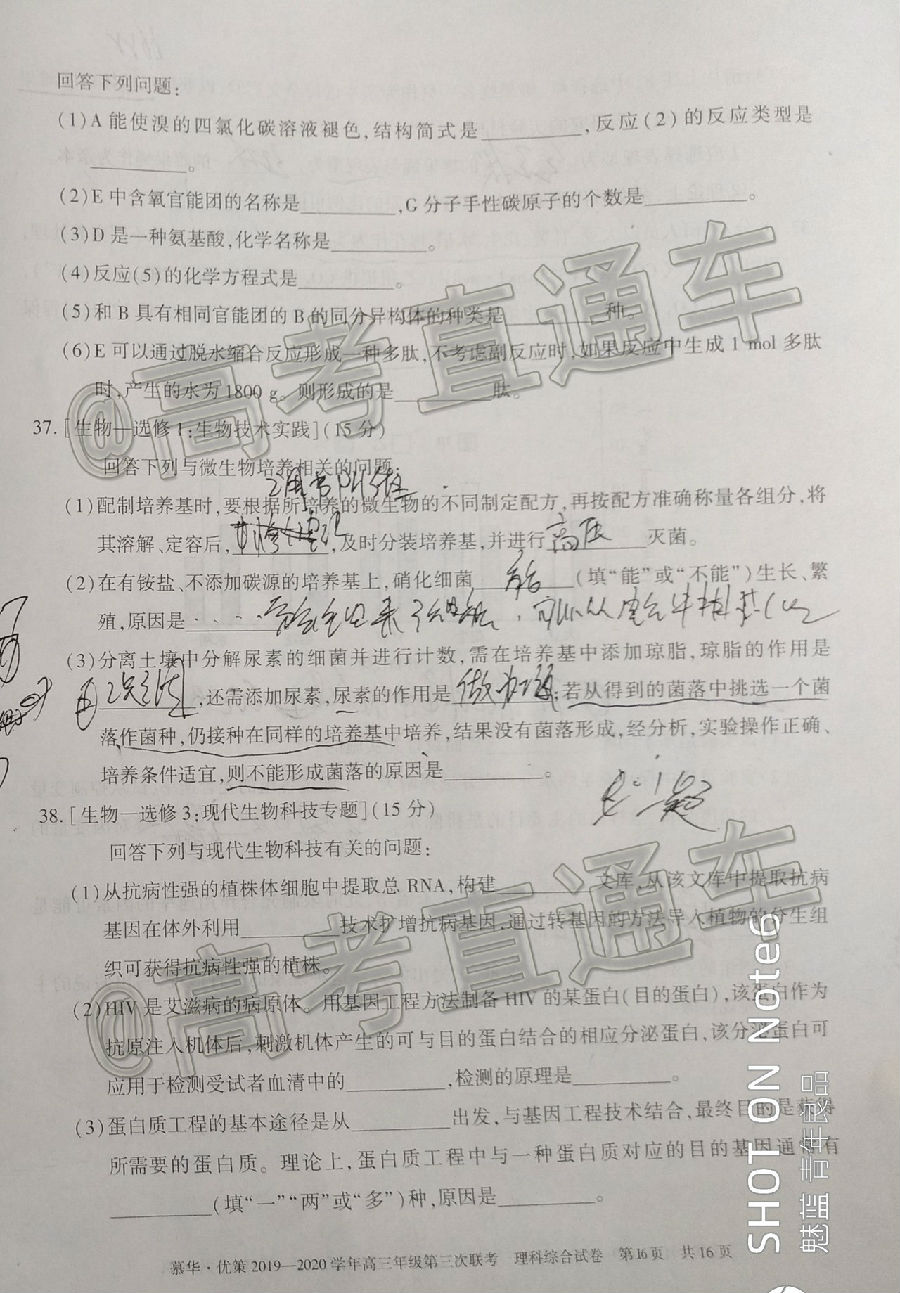 回答下列问题:
(1)A 能使溴的四氯化碳溶液褪色,结构简式是________,反应(2)的反应类型是
________。
(2)E 中含氧官能团的名称是________,G 分子手性碳原子的个数是________。
(3)D 是一种氨基酸,化学名称是________。
(4)反应(5)的化学方程式是________。
(5)和 B 具有相同官能团的 B 的同分异构体的种类是________种。
(6)E 可以通过脱水缩合反应形成一种多肽,不考虑副反应时,如果反应中生成 1 mol 多肽
时,产生的水为 1800 g。则形成的是________肽。
37.[生物—选修 1:生物技术实践](15 分)
回答下列与微生物培养相关的问题:
(1)配制培养基时,要根据所培养的微生物的不同制定配方,再按配方准确称量各组分,将
其溶解、定容后,________,及时分装培养基,并进行 高压 灭菌。
(2)在有铵盐、不添加碳源的培养基上,硝化细菌 能 (填“能”或“不能”)生长、繁
殖,原因是
(3)分离土壤中分解尿素的细菌并进行计数,需在培养基中添加琼脂,琼脂的作用是
________,还需添加尿素,尿素的作用是________;若从得到的菌落中挑选一个菌
落作菌种,仍接种在同样的培养基中培养,结果没有菌落形成,经分析,实验操作正确、
培养条件适宜,则不能形成菌落的原因是________。
38.[生物—选修 3:现代生物科技专题](15 分)
回答下列与现代生物科技有关的问题:
(1)从抗病性强的植株体细胞中提取总 RNA,构建________文库,从该文库中提取抗病
基因在体外利用________技术扩增抗病基因,通过转基因的方法导入植物的分生组
织可获得抗病性强的植株。
(2)HIV 是艾滋病的病原体。用基因工程方法制备 HIV 的某蛋白(目的蛋白),该蛋白作为
抗原注入机体后,刺激机体产生的可与目的蛋白结合的相应分泌蛋白,该分泌蛋白可
应用于检测受试者血清中的________,检测的原理是________。
(3)蛋白质工程的基本途径是从________出发,与基因工程技术结合,最终目的是获得
所需要的蛋白质。理论上,蛋白质工程中与一种蛋白质对应的目的基因通常有
________(填“一”“两”或“多”)种,原因是________。
慕华·优策 2019—2020 学年高三年级第三次联考 理科综合试卷 第16页 共16页
@高考直通车
@高考直通车
SHOT ON Note6
魅蓝 青年良品